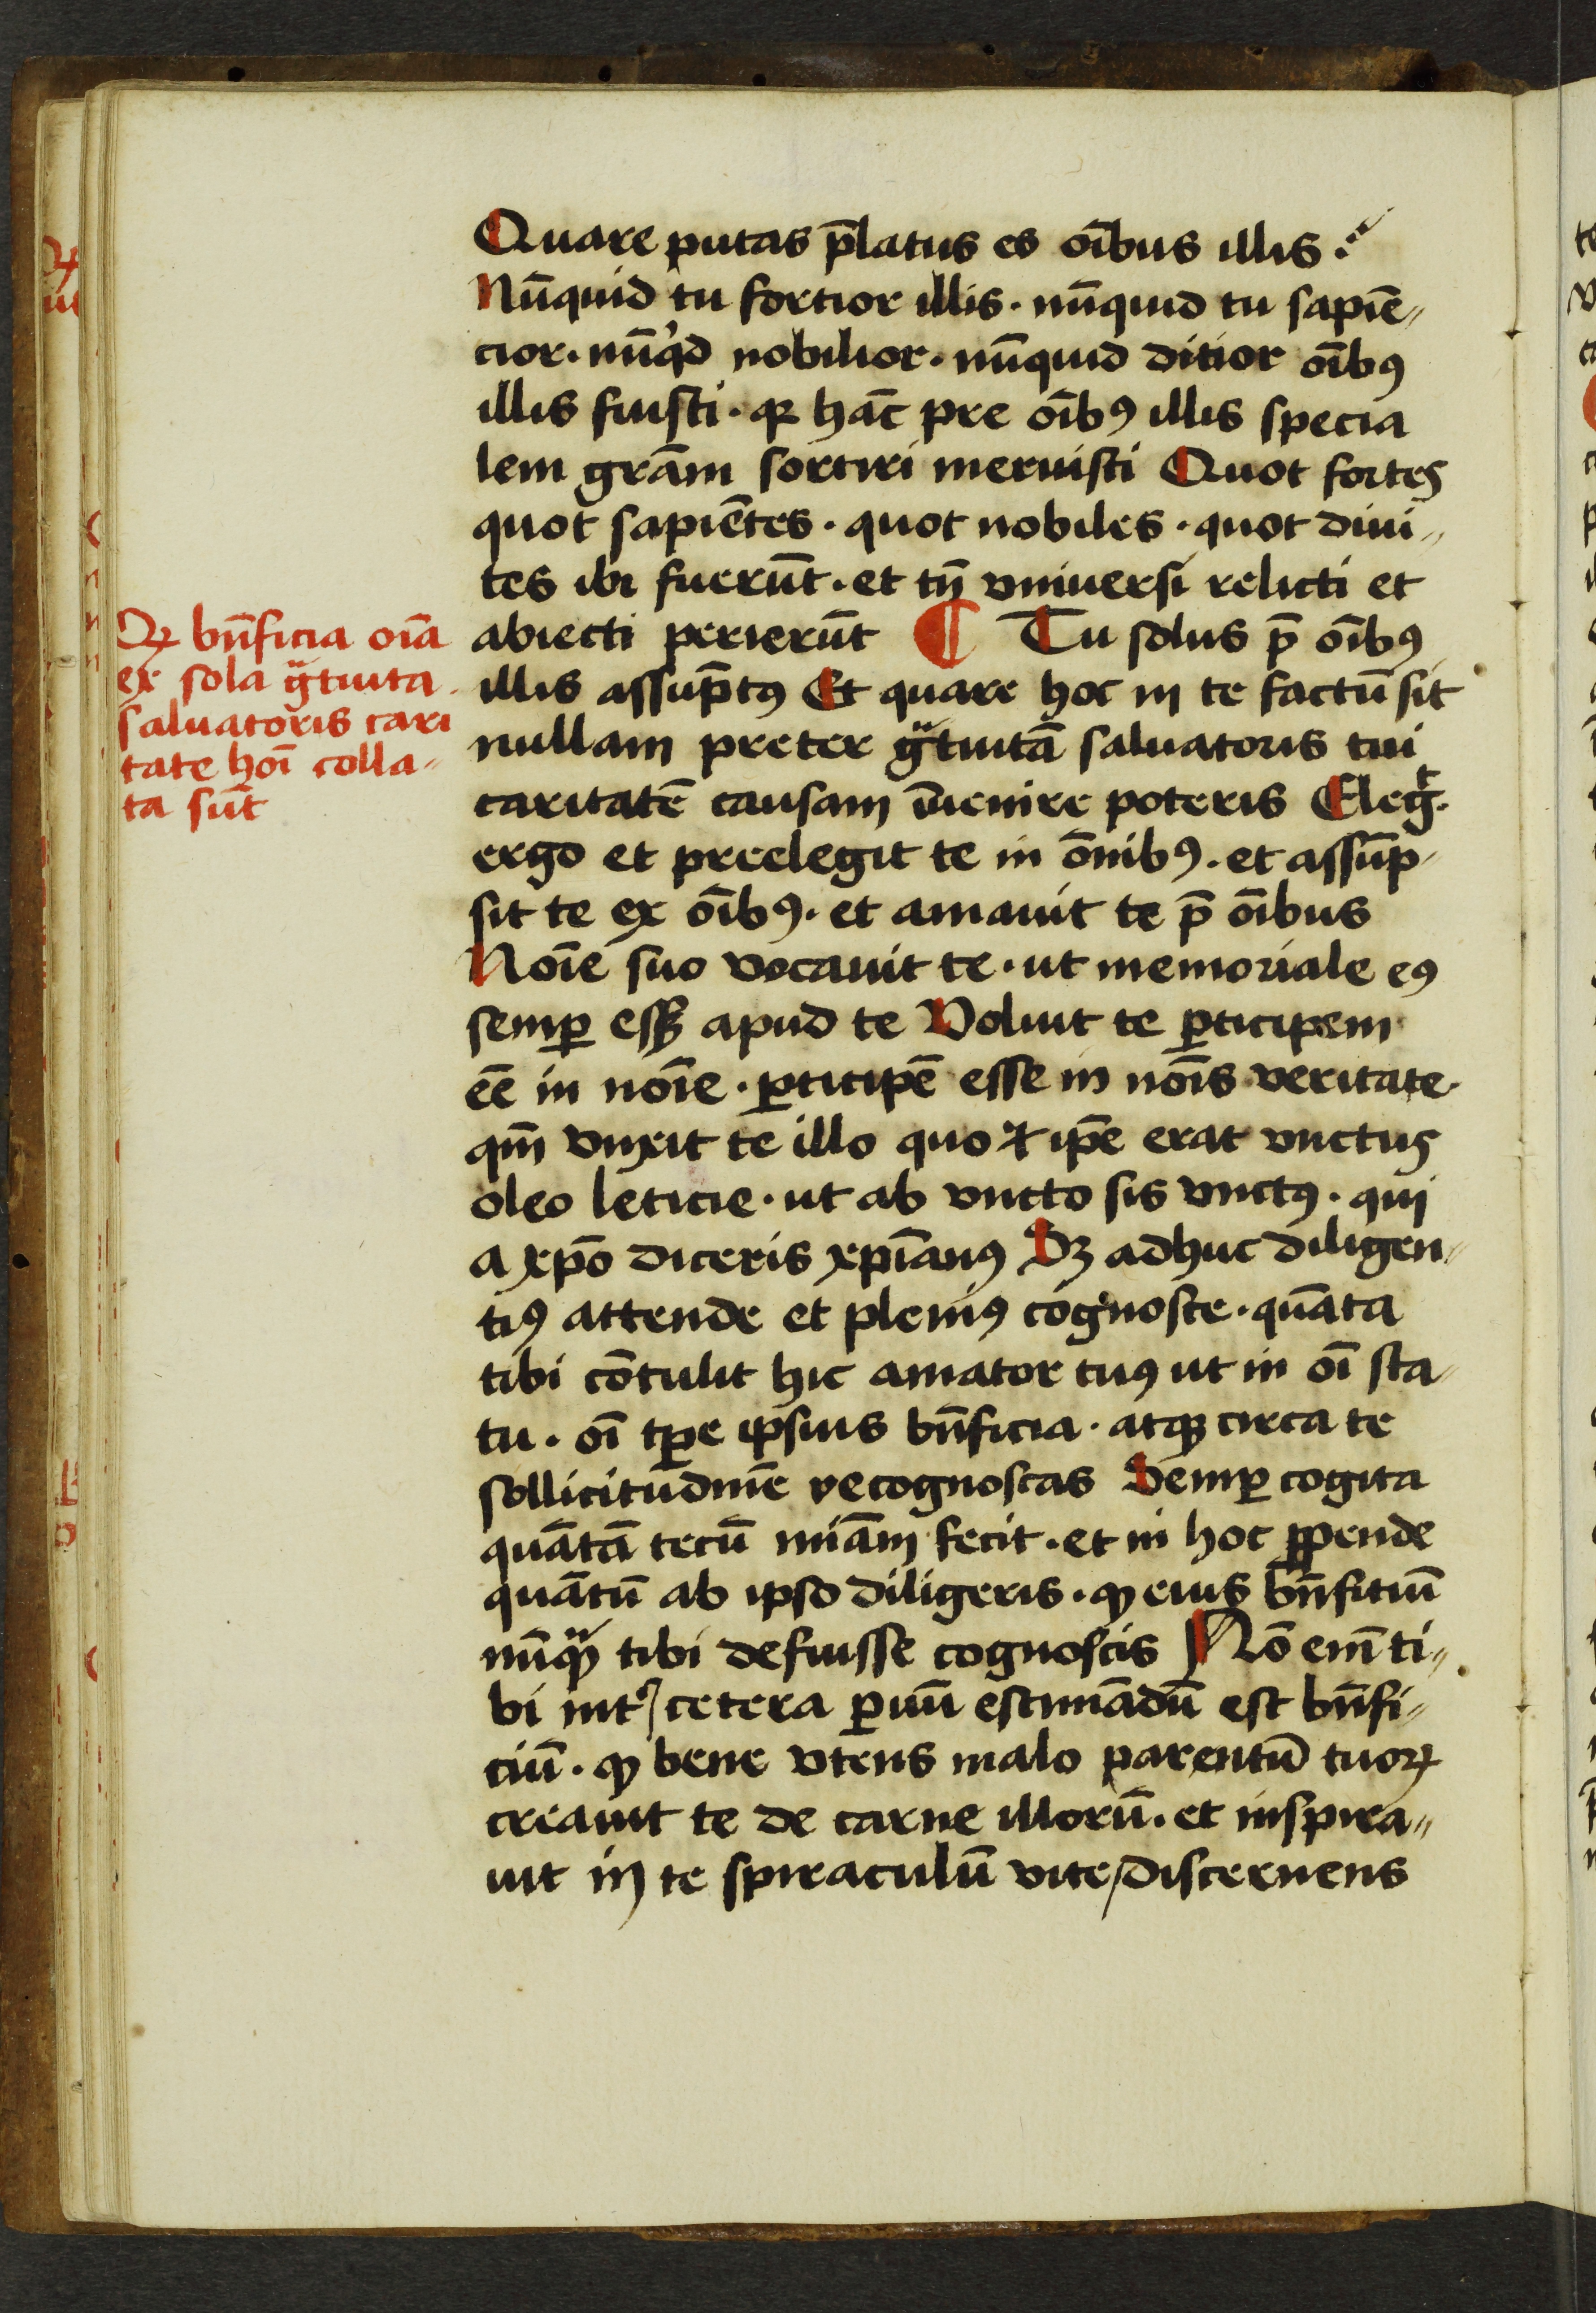 Quare putas p̄latus es oı̄bus illis ·
Nūquid tu fortior illis · nūquid tu sapiē„
cior · nūqͥd nobilior · nūquid ditior oı̄bꝯ
illis fuisti · ꝙ hāc pre oı̄bꝯ illis specia
lem grām sortiri meruisti Quot fortes
quot sapiētes · quot nobiles · quot diui„
tes ibi fuerūt · et tn̄ vniuersi relicti et
abiecti perierūt ¶ Tu solus p̄ oı̄bꝯ
illis assūptꝯ Et quare hoc in te factū sit
nullam preter gͣtuitā saluatoris tui
caritatē causam īuenire poteris Elegͭ ·
ergo et preelegit te in ōnibꝯ · et assūp„
sit te ex oı̄bꝯ · et amauit te p̄ oı̄bus
Noı̄e suo vocauit te · ut memoriale eꝯ
semꝑ essꝫ apud te Voluit te ꝑticipem
ēe in noı̄e · ꝑticipē esse in noı̄s veritate ·
qm̄ vnxit te illo quo ⁊ ip̄e erat vnctus
oleo leticie · ut ab vncto sis vnctꝯ · qui
a xp̄o diceris xp̄ianꝯ Sꝫ adhuc diligen„
tiꝯ attende et pleniꝯ cognosce · quāta
tibi cōtulit hic amator tuꝯ ut in oı̄ sta„
tu · oı̄ tꝑe ipsius bn̄ficia · atqꝫ circa te
sollicitudinē recognoscas Semꝑ cogita
quātā tecū mı̄am fecit · et in hoc ꝑpende
quātū ab ipso diligeris · ꝙ eius bn̄fitiū
nūqͣꝫ tibi defuisse cognoscis Nō eı̄ ti„
bi intͬ cetera ꝑuū estimādū est bn̄fi„
ciū · ꝙ bene vtens malo parentū tuoꝝ
creauit te de carne illorū · et inspira„
uit in te spiraculū vite / discernens
Qꝫ bn̄ficia oı̄a
ex sola gͣtuita
saluatoris cari
tate hoı̄ colla„
ta sūt